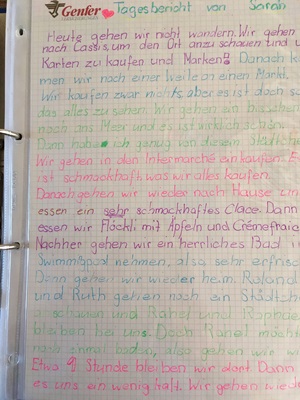 Genfer Tagesbericht von Sarah
Heute gehen wir nicht wandern. Wir gehen
nach Cassis, um den Ort anzuschauen und
Karten zu kaufen und Marken!! Danach
men wir noch einer Weile an einen Markt.
Wir kaufen zwar nichts, aber es ist doch
das alles zu sehen. Wir gehen ein bisschen
noch ans Meer und es ist wirklich schön.
Dann habe ich genug von diesem Städtchen
Wir gehen in den Intermarché einkaufen. E
ist schmackhaft, was wir alles kaufen.
Danach gehen wir wieder nach Hause
essen ein sehr schmackhaftes Glace. Dann
essen wir Flöckli mit Äpfeln und Crèmefraîc
Nachher gehen wir ein herrliches Bad i
Swimmingpool nehmen, also sehr erfris
Dann gehen wir wieder heim. Roland
und Ruth gehen noch ein Städtch
anschauen und Rahel und Raphae
bleiben bei uns. Doch Rahel möcht
noch einmal baden, also gehen wir
Etwa 1 Stunde bleiben wir dort. Dann
es uns ein wenig kalt. Wir gehen wied